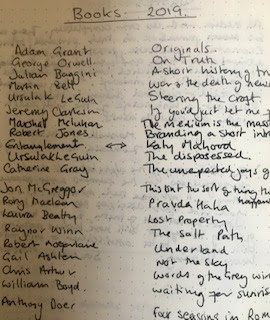 Books. 2019.
Adam Grant Originals.
George Orwell On Truth
Julian Baggini A short history of tru
Martin Bell War & the death of news
Ursula K LeGuin Steering the Craft
Jeremy Clarkson If you'd just let me f
Marshal McLuhan The medium is the mass
Robert Jones. Branding a short intr
Entanglement ↔ Katy Mahood
Ursula K LeGuin The dispossessed.
Catherine Gray The unexpected joys of
Jon McGregor This isn't the sort of thing tha happens
Rory Maclean Pravda Haha
Laura Beatty Lost Property
Raynor Winn The Salt Path
Robert Macfarlane Underland
Gail Not the sky
Chris Arthur Words of the Grey Win
William Boyd. Waiting for sunris
Anthony Doer Four seasons in Rom